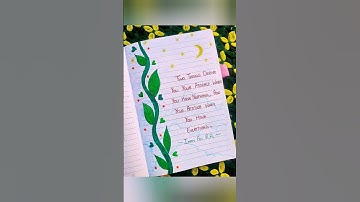 Two Things Define
You Your Patience When
You Have Nothing,
Your Attitude When
You Have
Everything..
~ Imam Ali R.A ~